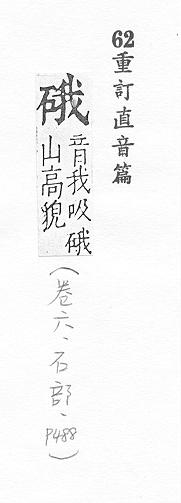 62重訂直音篇
硪
音我岋硪
山高貌
（卷六、石部、P488）